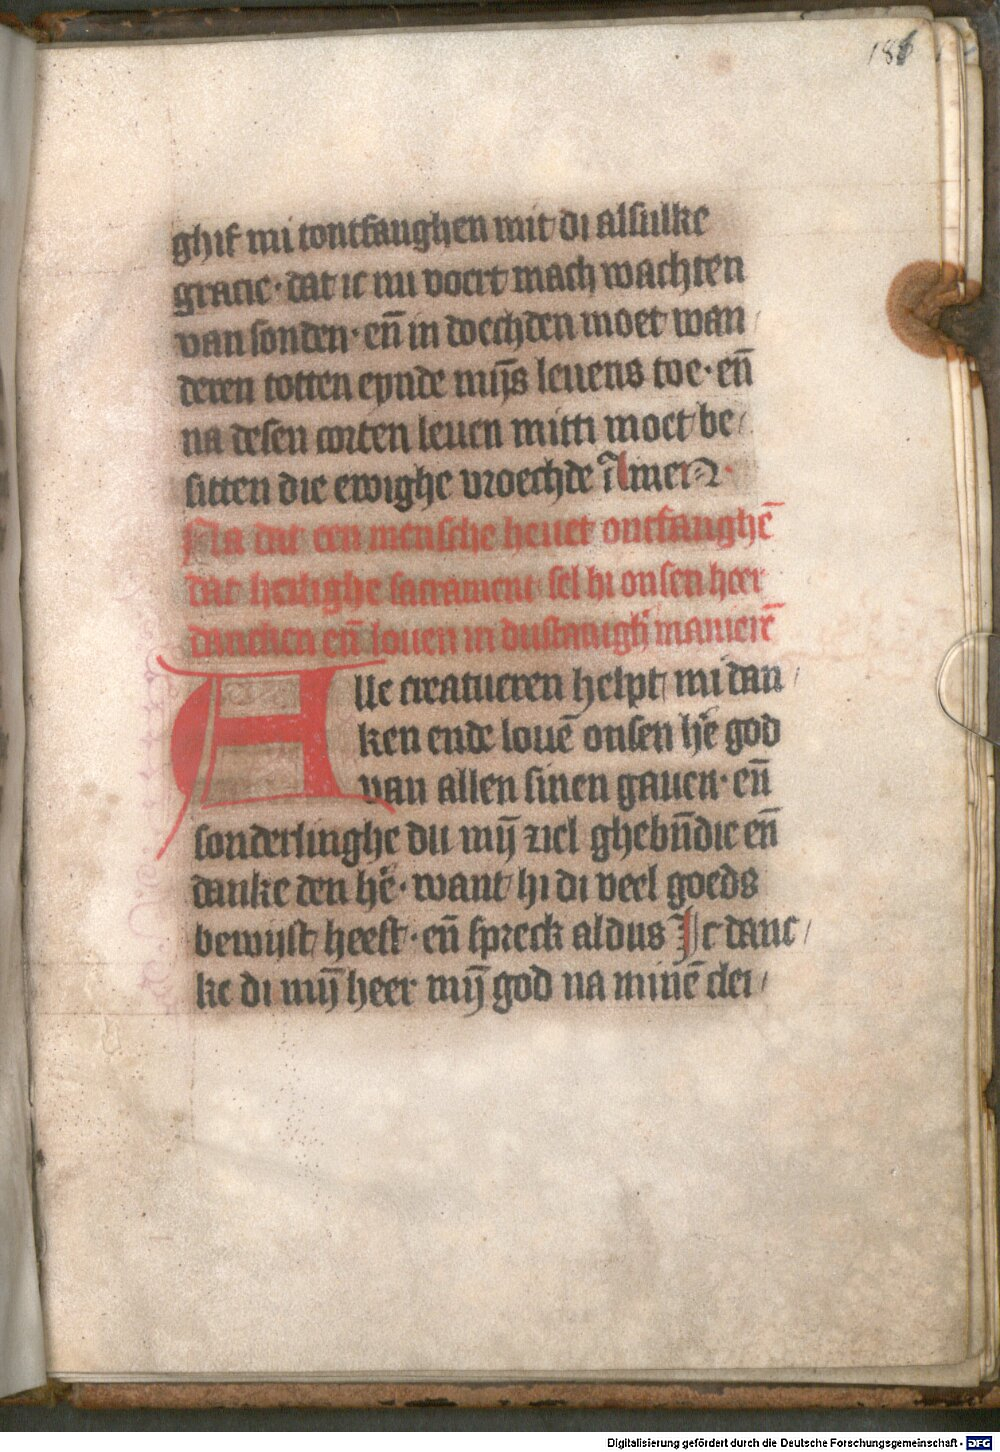 186
ghif mi tontfanghen mit di alsulke
gracie · dat ic nu voert mach wachten
van sonden · en̄ in doechden moet wan/
deren totten eynde mijs leuens toe · en̄
na desen corten leuen mitti moet be/
sitten die ewighe vroechde Amen ·
Na dat een mensche heuet ontfanghē
dat heilighe sacrament sel hi onsen heer
dancken en̄ louen in dustanigh̄ manierē
Alle creatueren helpt mi dan/
ken ende louē onsen hē god
van allen sinen gauen · en̄
sonderlinghe du mij̄ ziel ghebn̄die en̄
danke den hē · want hi di veel goeds
bewijst heeft · en̄ spreck aldus Ic danc/
ke di mij̄ heer mij̄ god na minē clei/
Digitalisierung gefördert durch die Deutsche Forschungsgemeinschaft - DFG